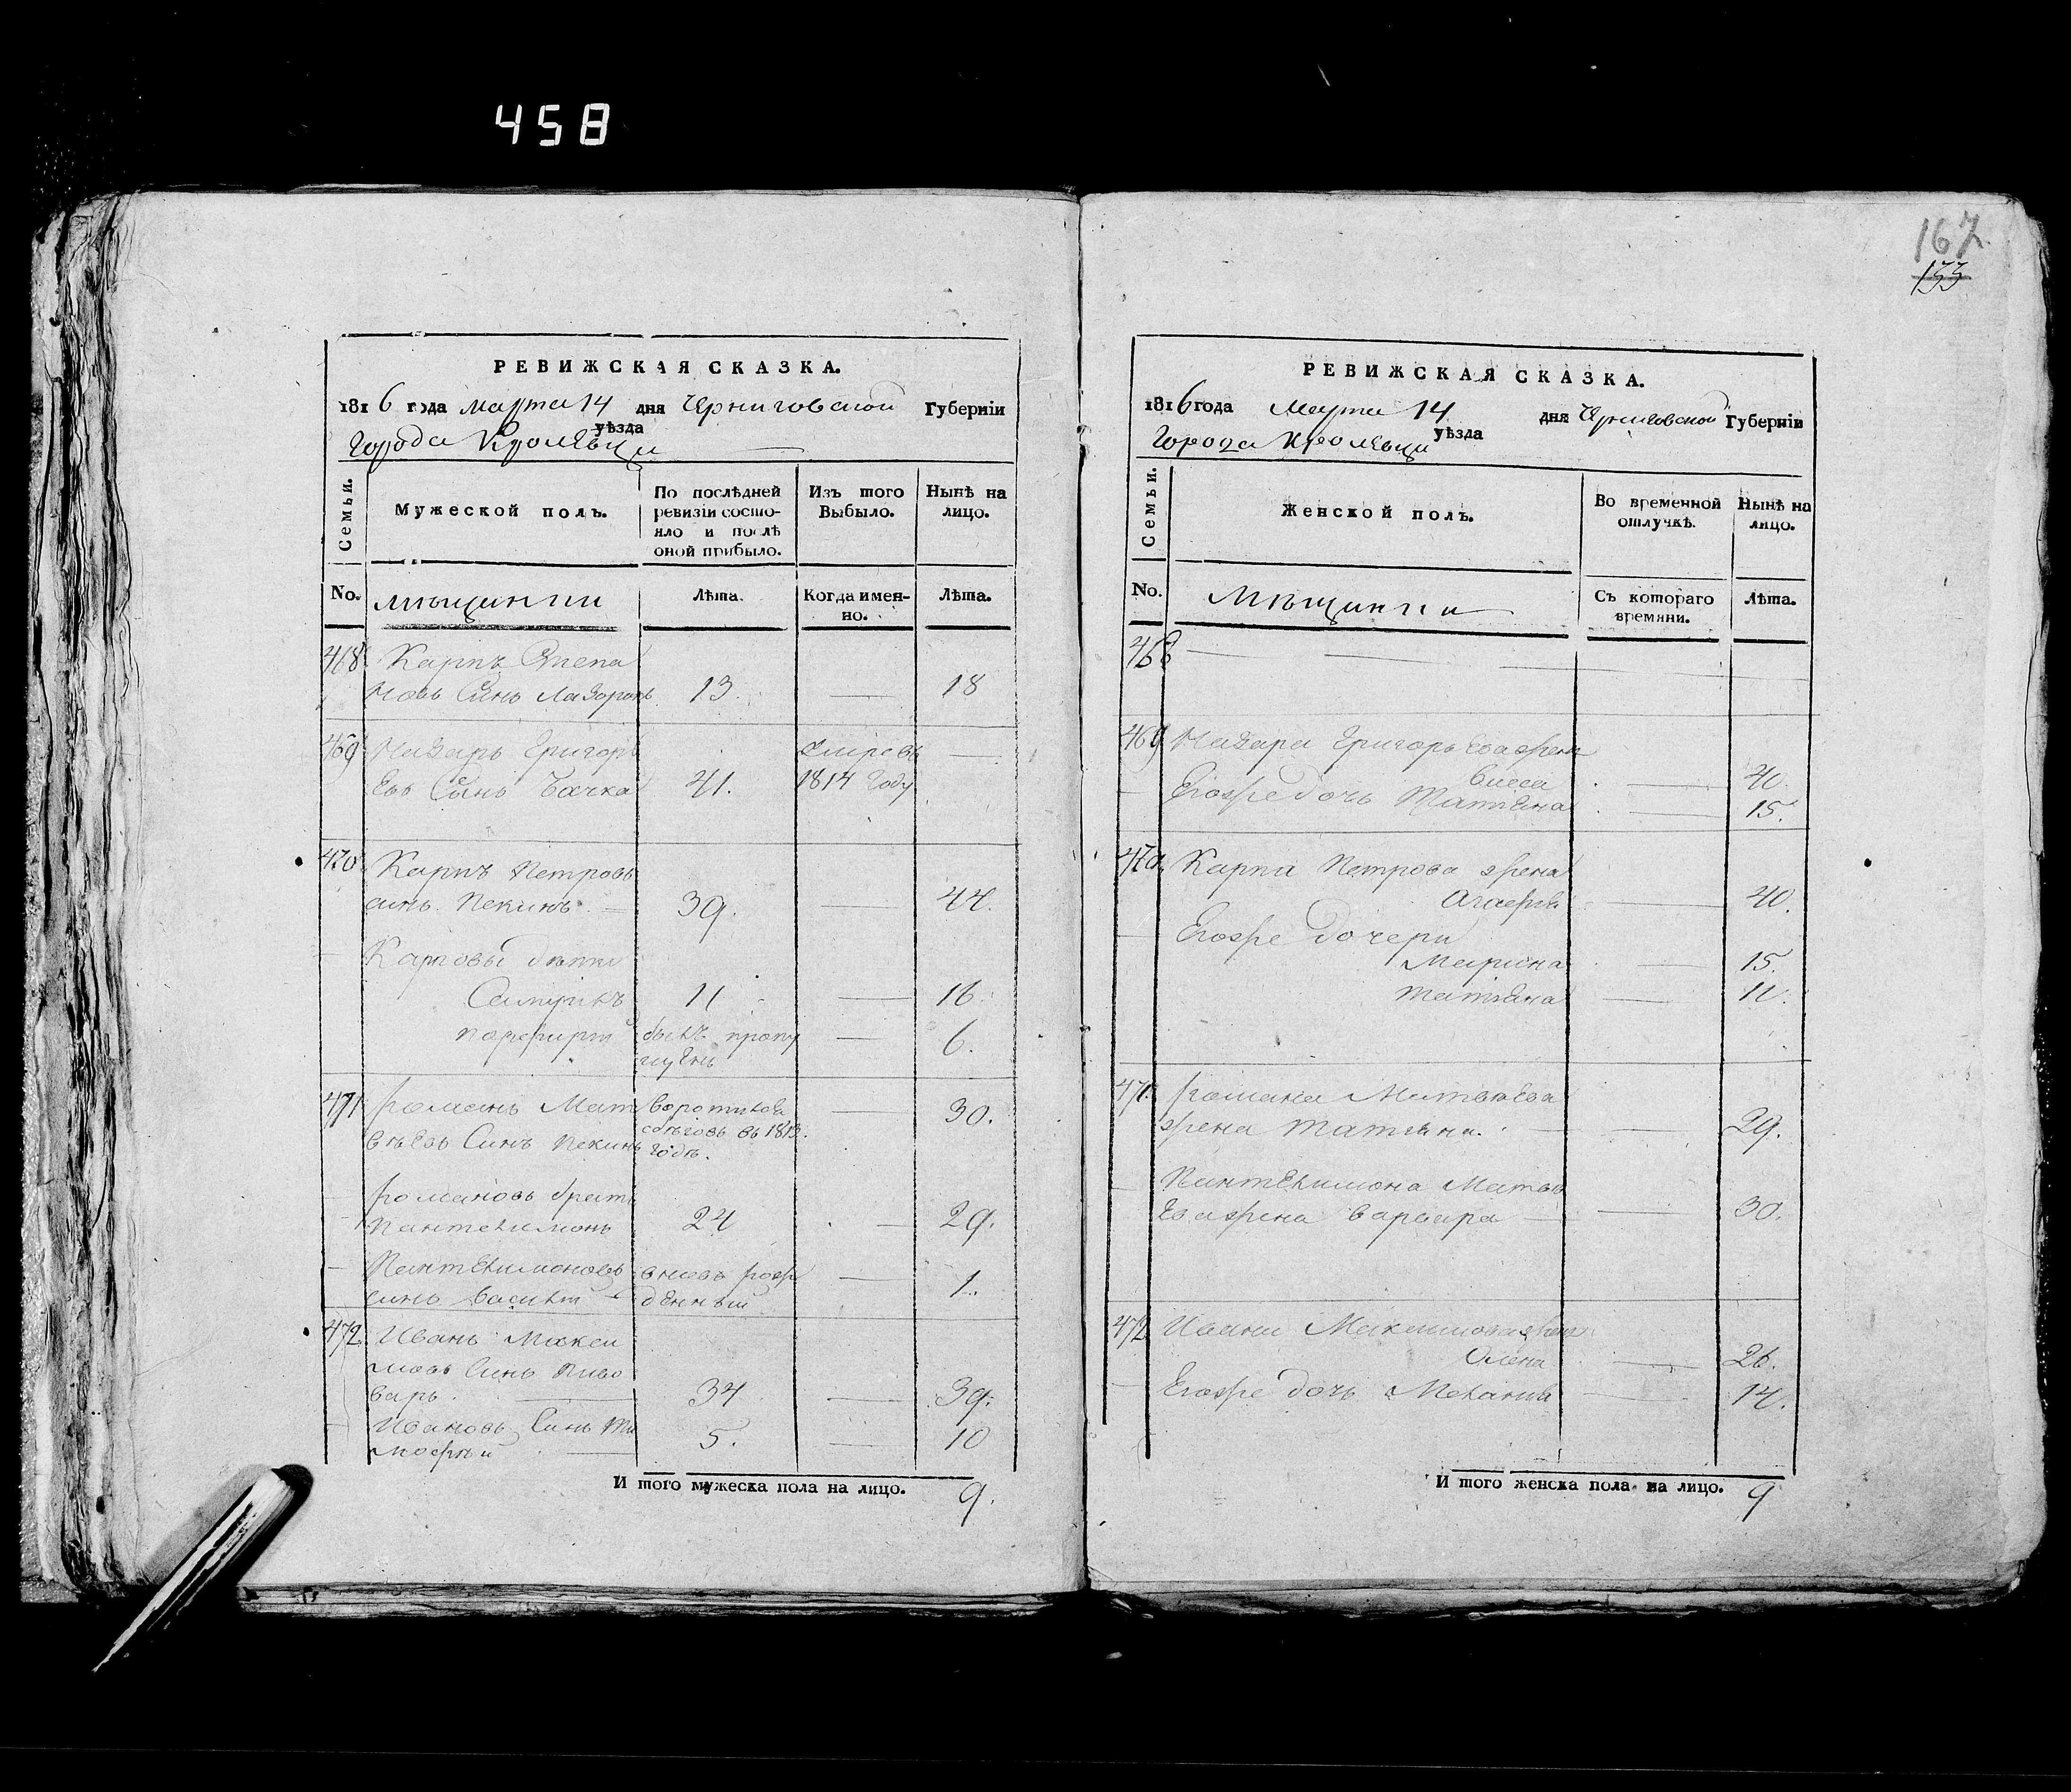 458
РЕВИЖСКАЯ СКАЗКА.
1816 года Марта 14 дня Черниговской Губерніи
уѣзда
Города Кролевца
Семьи.
Мужеской полъ.
По послѣдней ревизіи состояло и послѣ оной прибыло.
Изъ того Выбыло.
Нынѣ на лицо.
No. мѣщинии
Лѣта.
Когда именно.
Лѣта.
468 Карпъ Степа
новъ Синъ Лазоренъ 13. 18
469 Назаръ Григорь
евъ Синъ Бачка 41.
умре въ 1814 Году
470 Карпъ Петровъ
синъ Пекинъ 39. 44.
Карповы дѣти
11 16.
Порфирій былъ пропущенъ 6.
471 Романъ Мат
вѣевъ Синъ Пекинъ 30.
съ бѣговъ въ 1813. Годѣ.
Романовъ братъ
Пантелимонъ 24 29.
Пантелимоновъ
синъ Василій вновь рожденный 1.
472 Иванъ Макси
мовъ Синъ Пиво
варъ 34 39.
Ивановъ Синъ Ти
мофѣй 5. 10
И того мужеска пола на лицо. 9.
167.
133
РЕВИЖСКАЯ СКАЗКА.
1816 года Марта 14 дня Черниговской Губерніи
уѣзда
Города Кролевца
Семьи.
Женской полъ.
Во временной отлучкѣ.
Нынѣ на лицо.
No. Мѣщинии
Съ котораго времяни.
Лѣта.
468
469 Назара Григорьева жена
40.
Егоже дочь Татіяна 15.
470. Карпа Петрова жена
Агафія 40.
Егоже дочери
Марина 15.
Татіяна 11.
471. Романа Матвѣева
жена Татіяна. 29.
Пантелимона Матвѣ
ева жена Варвара 30.
472 Ивана Максимова жена
Олена 26.
Егоже дочь Меланія 14.
И того женска пола на лицо. 9